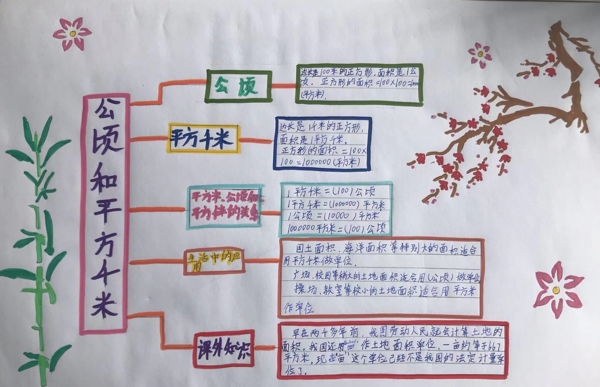 公顷和平方千米
公顷
边长是100米的正方形,面积是1公
顷。正方形的面积=100×100=10000
(平方米)。
平方千米
边长是1千米的正方形,
面积是1平方千米。
正方形的面积=100×
100=1000000(平方米)
平方米、公顷和
平方千米的关系
1平方千米=(100)公顷
1平方千米=(1000000)平方米
1公顷=(10000)平方米
1000000平方米=(100)公顷
生活中的应
用
国土面积,海洋面积等特别大的面积适合
用平方千米做单位。
广场、校园等稍大的土地面积适合用(公顷)做单位
操场、教室等较小的土地面积适合用平方米
作单位
课外知识
早在两千多年前,我国劳动人民就会计算土地的
面积。我国还用"亩"作土地面积单位,一亩约等于667
平方米,现在"亩"这个单位已经不是我国的法定计量单
位了。